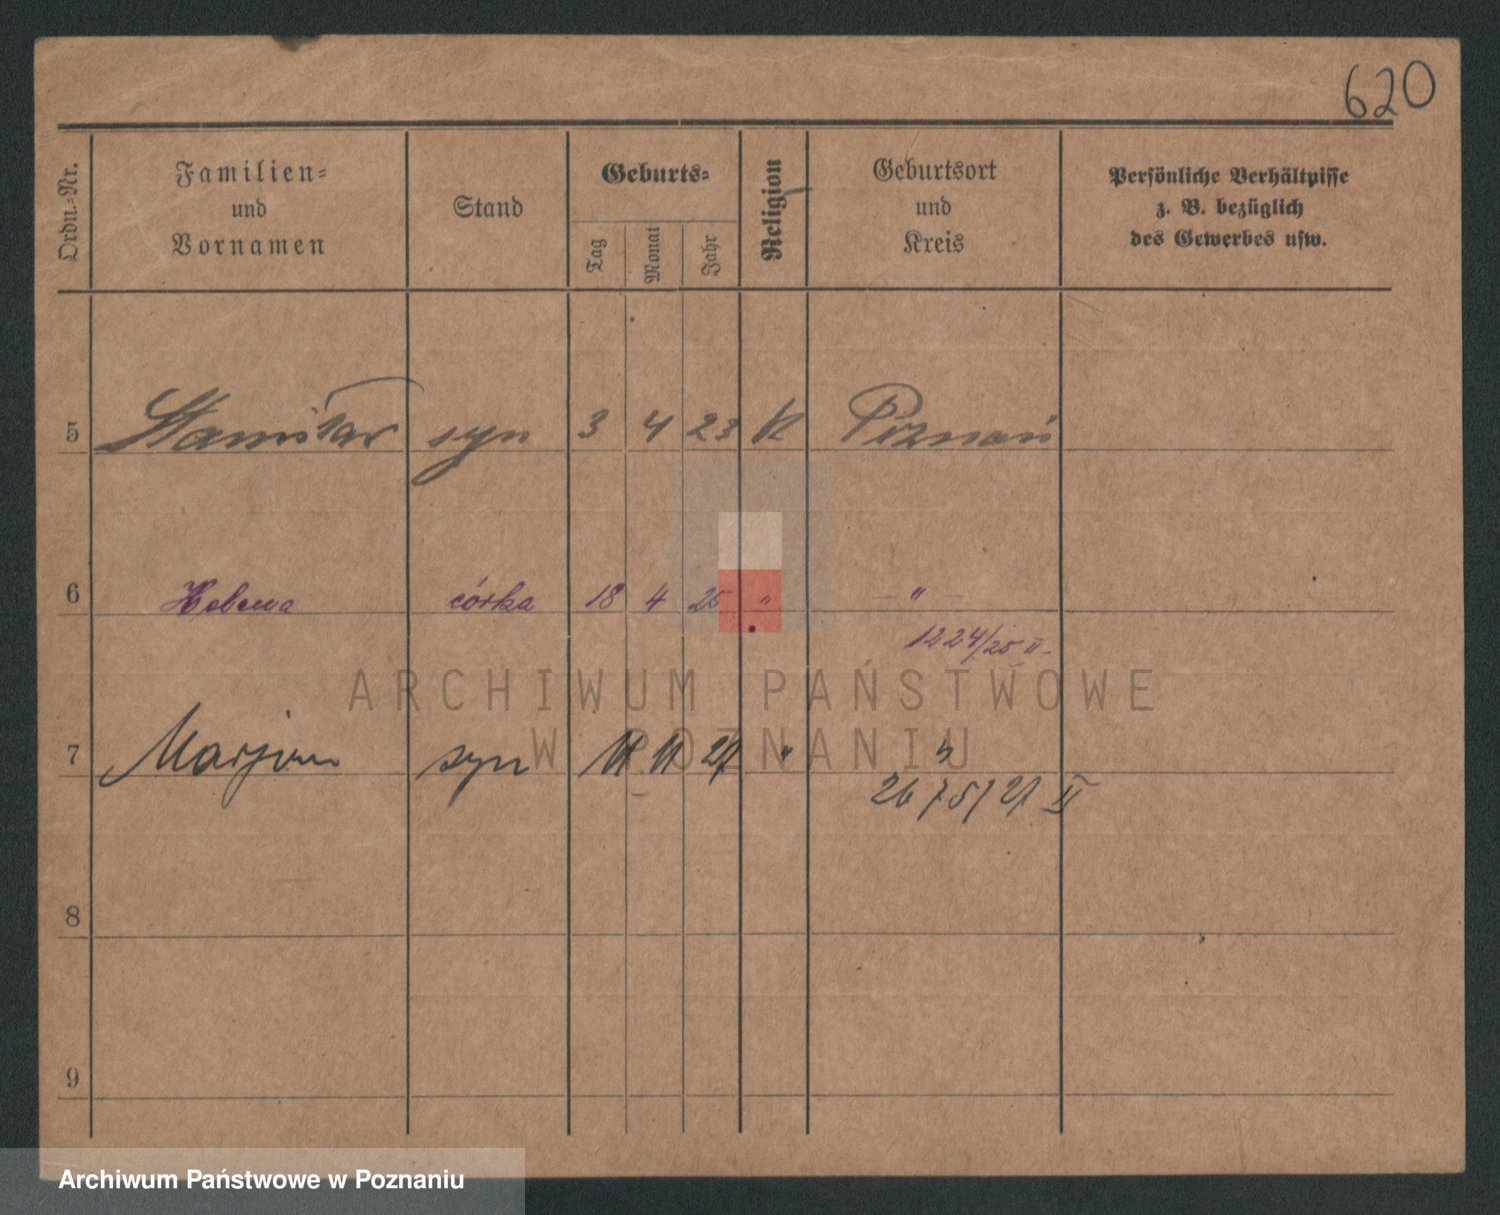 620
Ordn.-Nr.
Familien-
und
Vornamen
Stand
Geburts-
Tag
Monat
Jahr
Religion
Geburtsort
und
Kreis
Persönliche Verhältnisse
z. B. bezüglich
des Gewerbes usw.
5 Stanisław syn 3 4 23 K Poznań
6 Helena córka 18 4 25 " "
1224/25 II
7 Marjan syn 11 11 27 " "
2675/27 II
8
9
ARCHIWUM PAŃSTWOWE
W POZNANIU
Archiwum Państwowe w Poznaniu